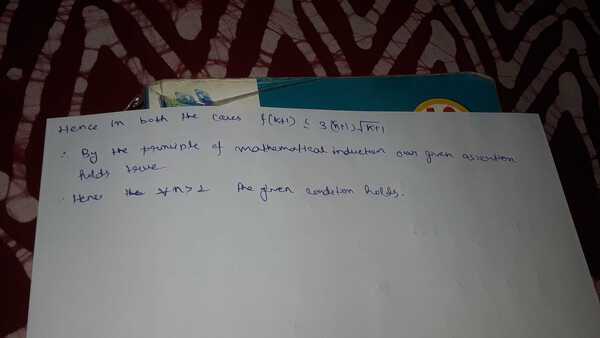 Hence in both the cases f(k+1) ≤ 3(k+1)√k+1
∴ By the principle of mathematical induction our given assertion
holds true
∴ Hence ∀ n > 1 the given condition holds.